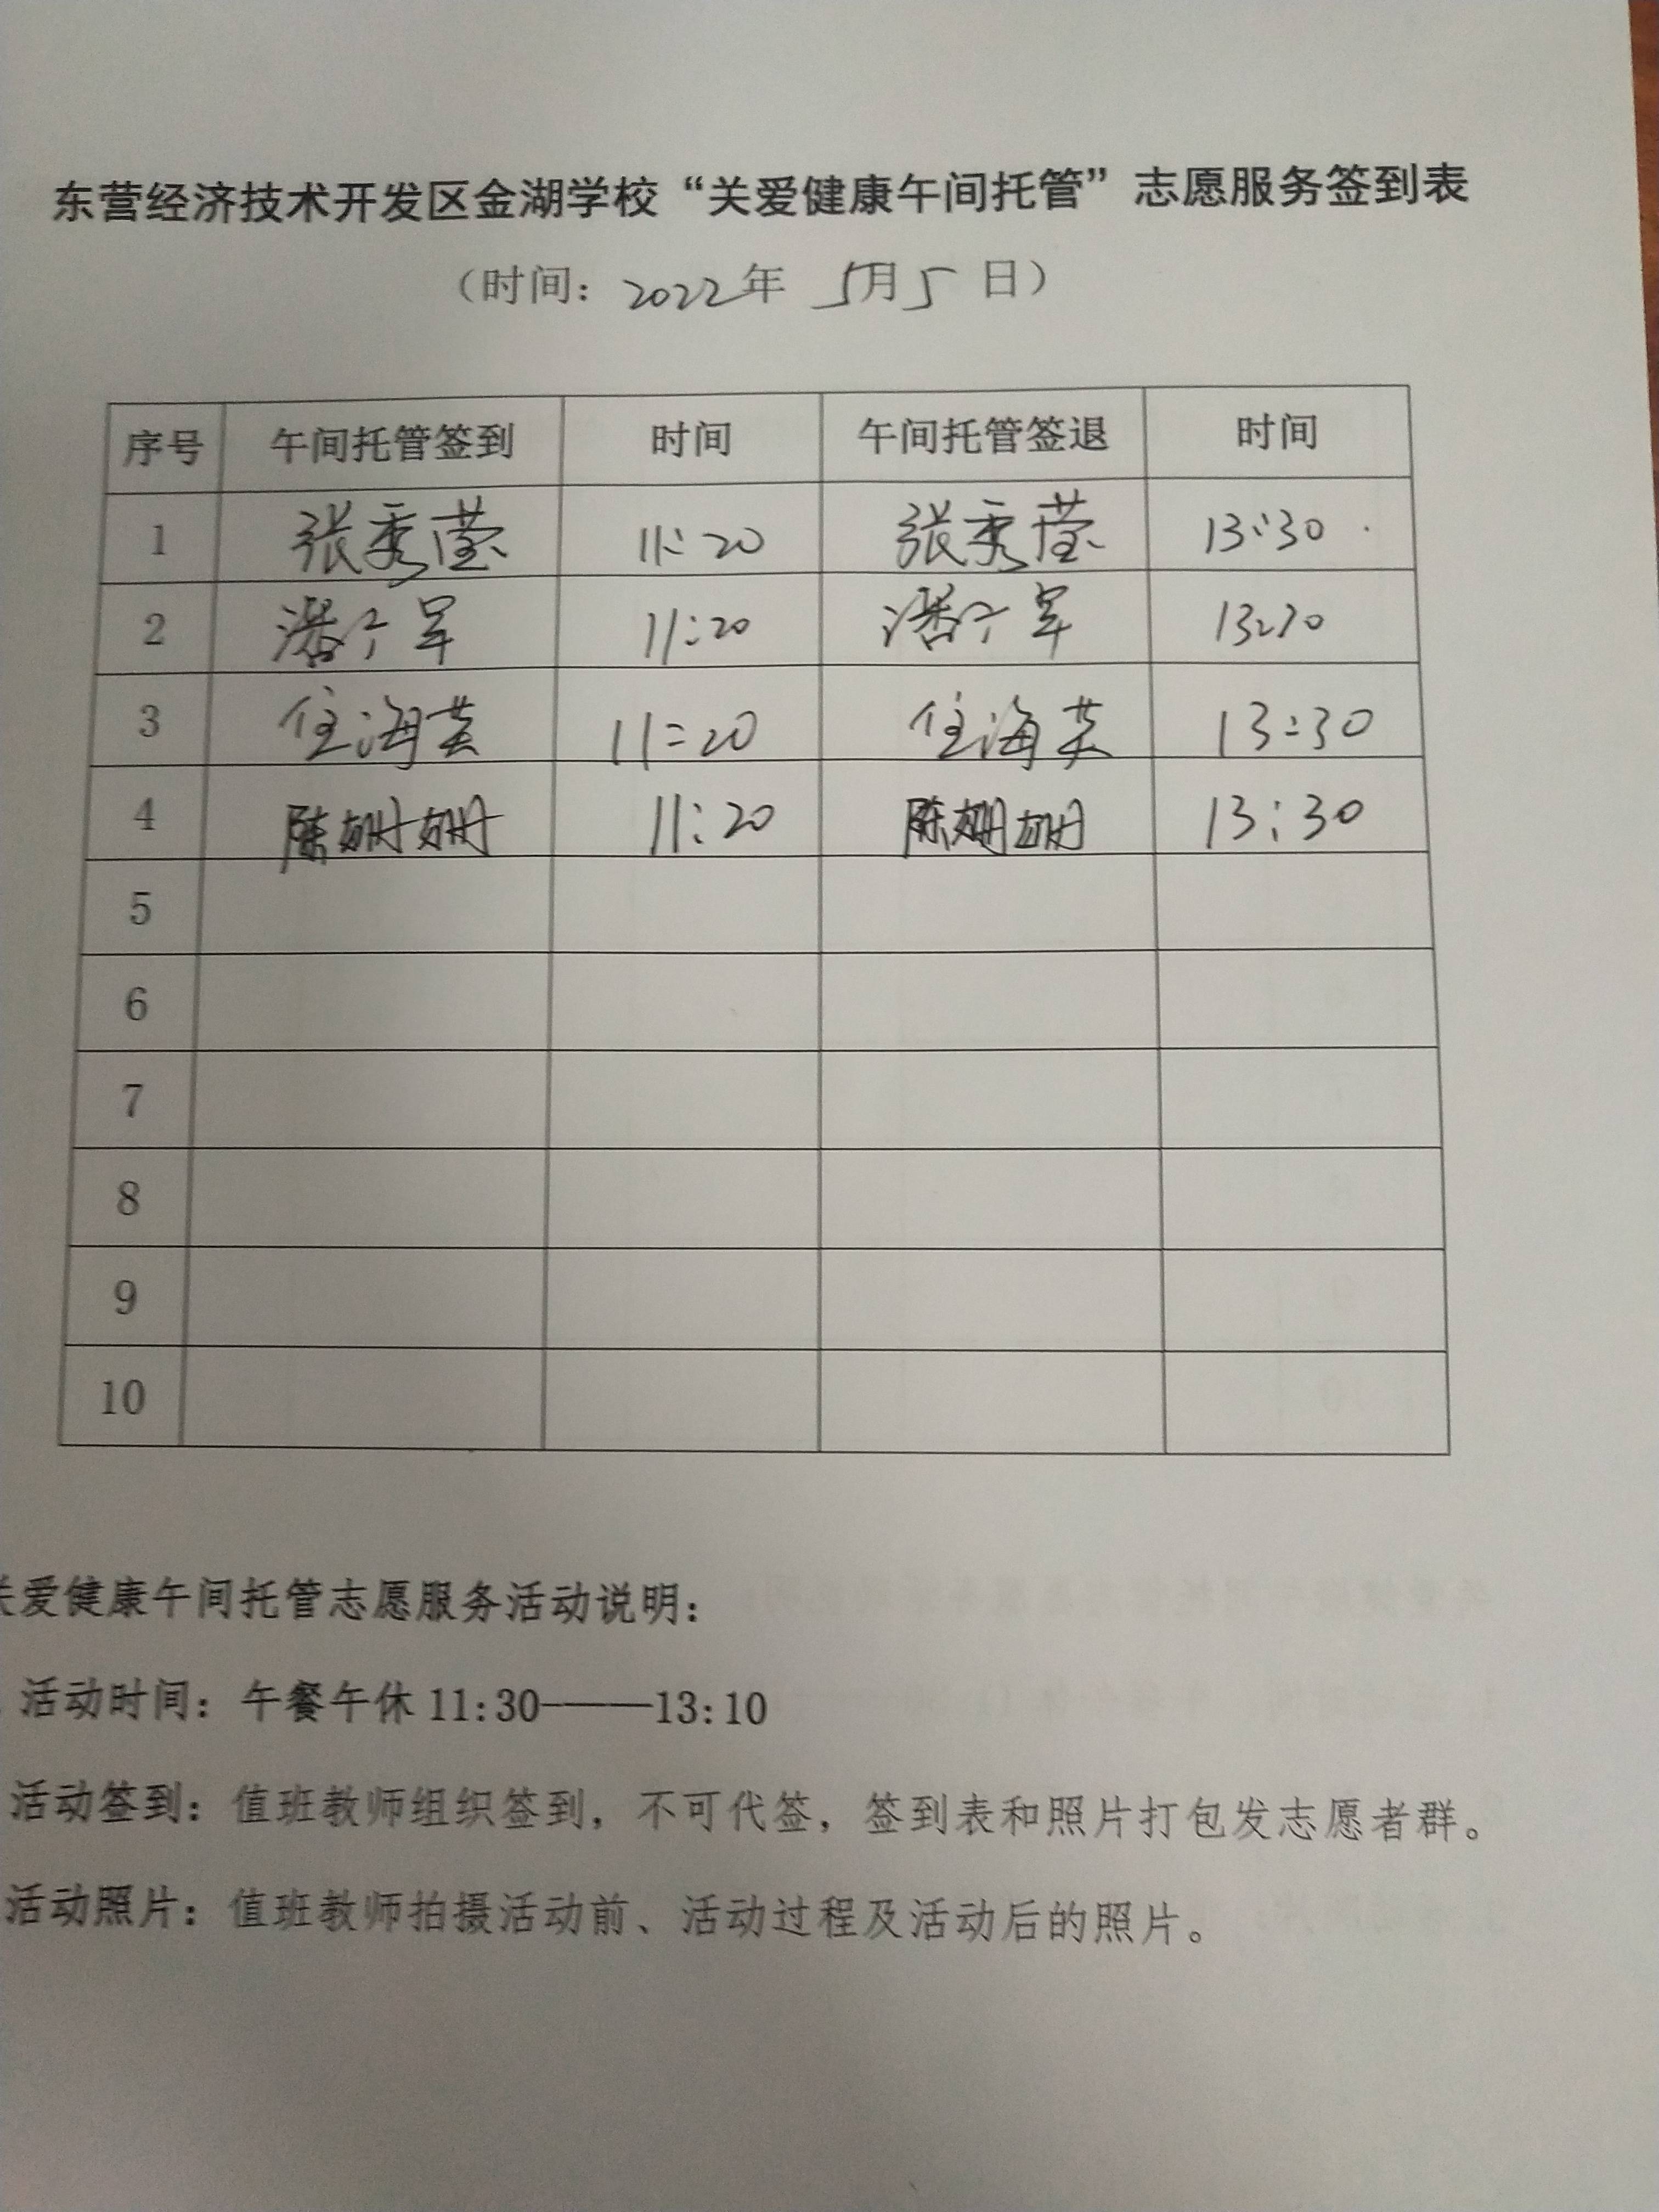 东营经济技术开发区金湖学校“关爱健康午间托管”志愿服务签到表
（时间：2022年 5月5日）
序号 午间托管签到 时间 午间托管签退 时间
1 张秀莹 11:20 张秀莹 13:30
2 潘 军 11:20 潘 军
3 海英 11:20 海英 13:30
4 陈姗姗 11:20 陈姗姗 13:30
5
6
7
8
9
10
关爱健康午间托管志愿服务活动说明：
活动时间：午餐午休 11:30———13:10
活动签到：值班教师组织签到，不可代签，签到表和照片打包发志愿者群。
活动照片：值班教师拍摄活动前、活动过程及活动后的照片。